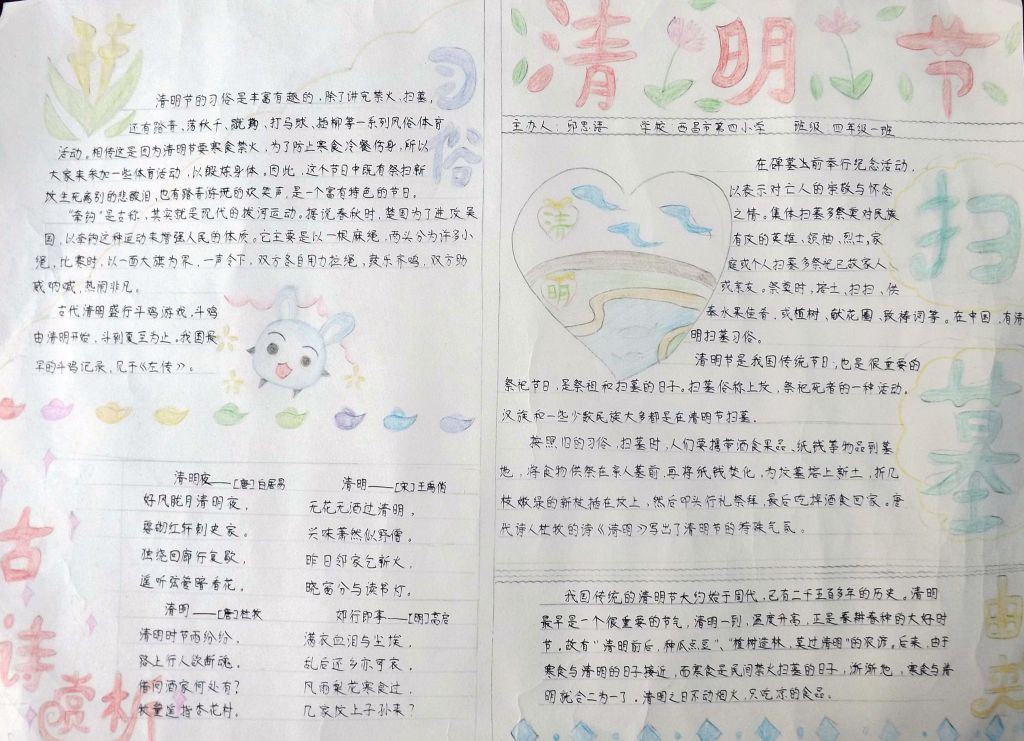 清明节
主办人：邱思语 学校：西昌市第四小学 班级：四年级一班
习俗
清明节的习俗是丰富有趣的，除了讲究禁火、扫墓，
还有踏青、荡秋千、蹴鞠、打马球、插柳等一系列风俗体育
活动。相传这是因为清明节要寒食禁火，为了防止寒食冷餐伤身，所以
大家来参加一些体育活动，以锻炼身体。因此，这个节日中既有祭扫新
坟生死离别的悲酸泪，也有踏青游玩的欢笑声，是一个富有特色的节日。
“牵钩”是古称，其实就是现代的拔河运动。据说春秋时，楚国为了进攻吴
国，以牵钩这种运动来增强人民的体质。它主要是以一根麻绳，两头分为许多小
绳，比赛时，以一面大旗为界，一声令下，双方各自用力拉绳，鼓乐齐鸣，双方助
威呐喊，热闹非凡。
古代清明盛行斗鸡游戏，斗鸡
由清明开始，斗到夏至为止。我国最
早的斗鸡记录，见于《左传》。
古诗赏析
清明夜——[唐]白居易
好风胧月清明夜，
碧砌红轩刺史家。
独绕回廊行复歇，
遥听弦管暗看花。
清明——[宋]王禹偁
无花无酒过清明，
兴味萧然似野僧。
昨日邻家乞新火，
晓窗分与读书灯。
清明——[唐]杜牧
清明时节雨纷纷，
路上行人欲断魂。
借问酒家何处有？
牧童遥指杏花村。
郊行即事——[明]高启
满衣血泪与尘埃，
乱后还乡亦可哀。
风雨梨花寒食过，
几家坟上子孙来？
清
明
扫墓
在碑墓当前举行纪念活动，
以表示对亡人的崇敬与怀念
之情。集体扫墓多祭奠对民族
有攻的英雄、领袖、烈士，家
庭或个人扫墓多祭祀已故家人
或亲友。祭奠时，培土、扫扫、供
奉水果佳香，或植树、献花圈、致祷词等。在中国，有清
明扫墓习俗。
清明节是我国传统节日，也是很重要的
祭祀节日，是祭祖和扫墓的日子。扫墓俗称上坟，祭祀死者的一种活动。
汉族和一些少数民族大多都是在清明节扫墓.
按照旧的习俗，扫墓时，人们要携带酒食果品、纸钱等物品到墓
地，将食物供祭在亲人墓前，再将纸钱焚化，为坟墓培上新土，折几
枝嫩绿的新枝插在坟上，然后叩头行礼祭拜，最后吃掉酒食回家。唐
代诗人杜牧的诗《清明》写出了清明节的特殊气氛。
由来
我国传统的清明节大约始于周代，已有二千五百多年的历史。清明
最早是一个很重要的节气，清明一到，温度升高，正是春耕春种的大好时
节，故有“清明前后，种瓜点豆”、“植树造林，莫过清明”的农谚。后来，由于
寒食与清明的日子接近，而寒食是民间禁火扫墓的日子，渐渐地，寒食与清
明就合二为一了，清明之日不动烟火，只吃凉的食品。